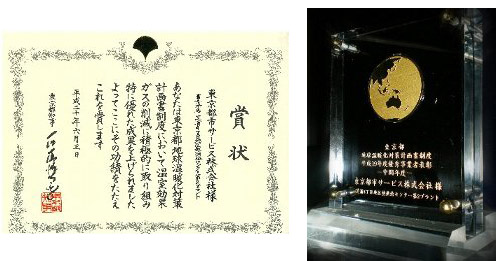 賞状
東京都市サービス株式会社様
あなたは東京都地球温暖化対策
計画書制度において温室効果
ガスの削減に積極的に取り組み
特に優れた成果を上げられました
よってここにその功績をたたえ
これを賞します
平成二十年六月三日
東京都知事
東京都
地球温暖化対策計画書制度
東京都市サービス株式会社 様